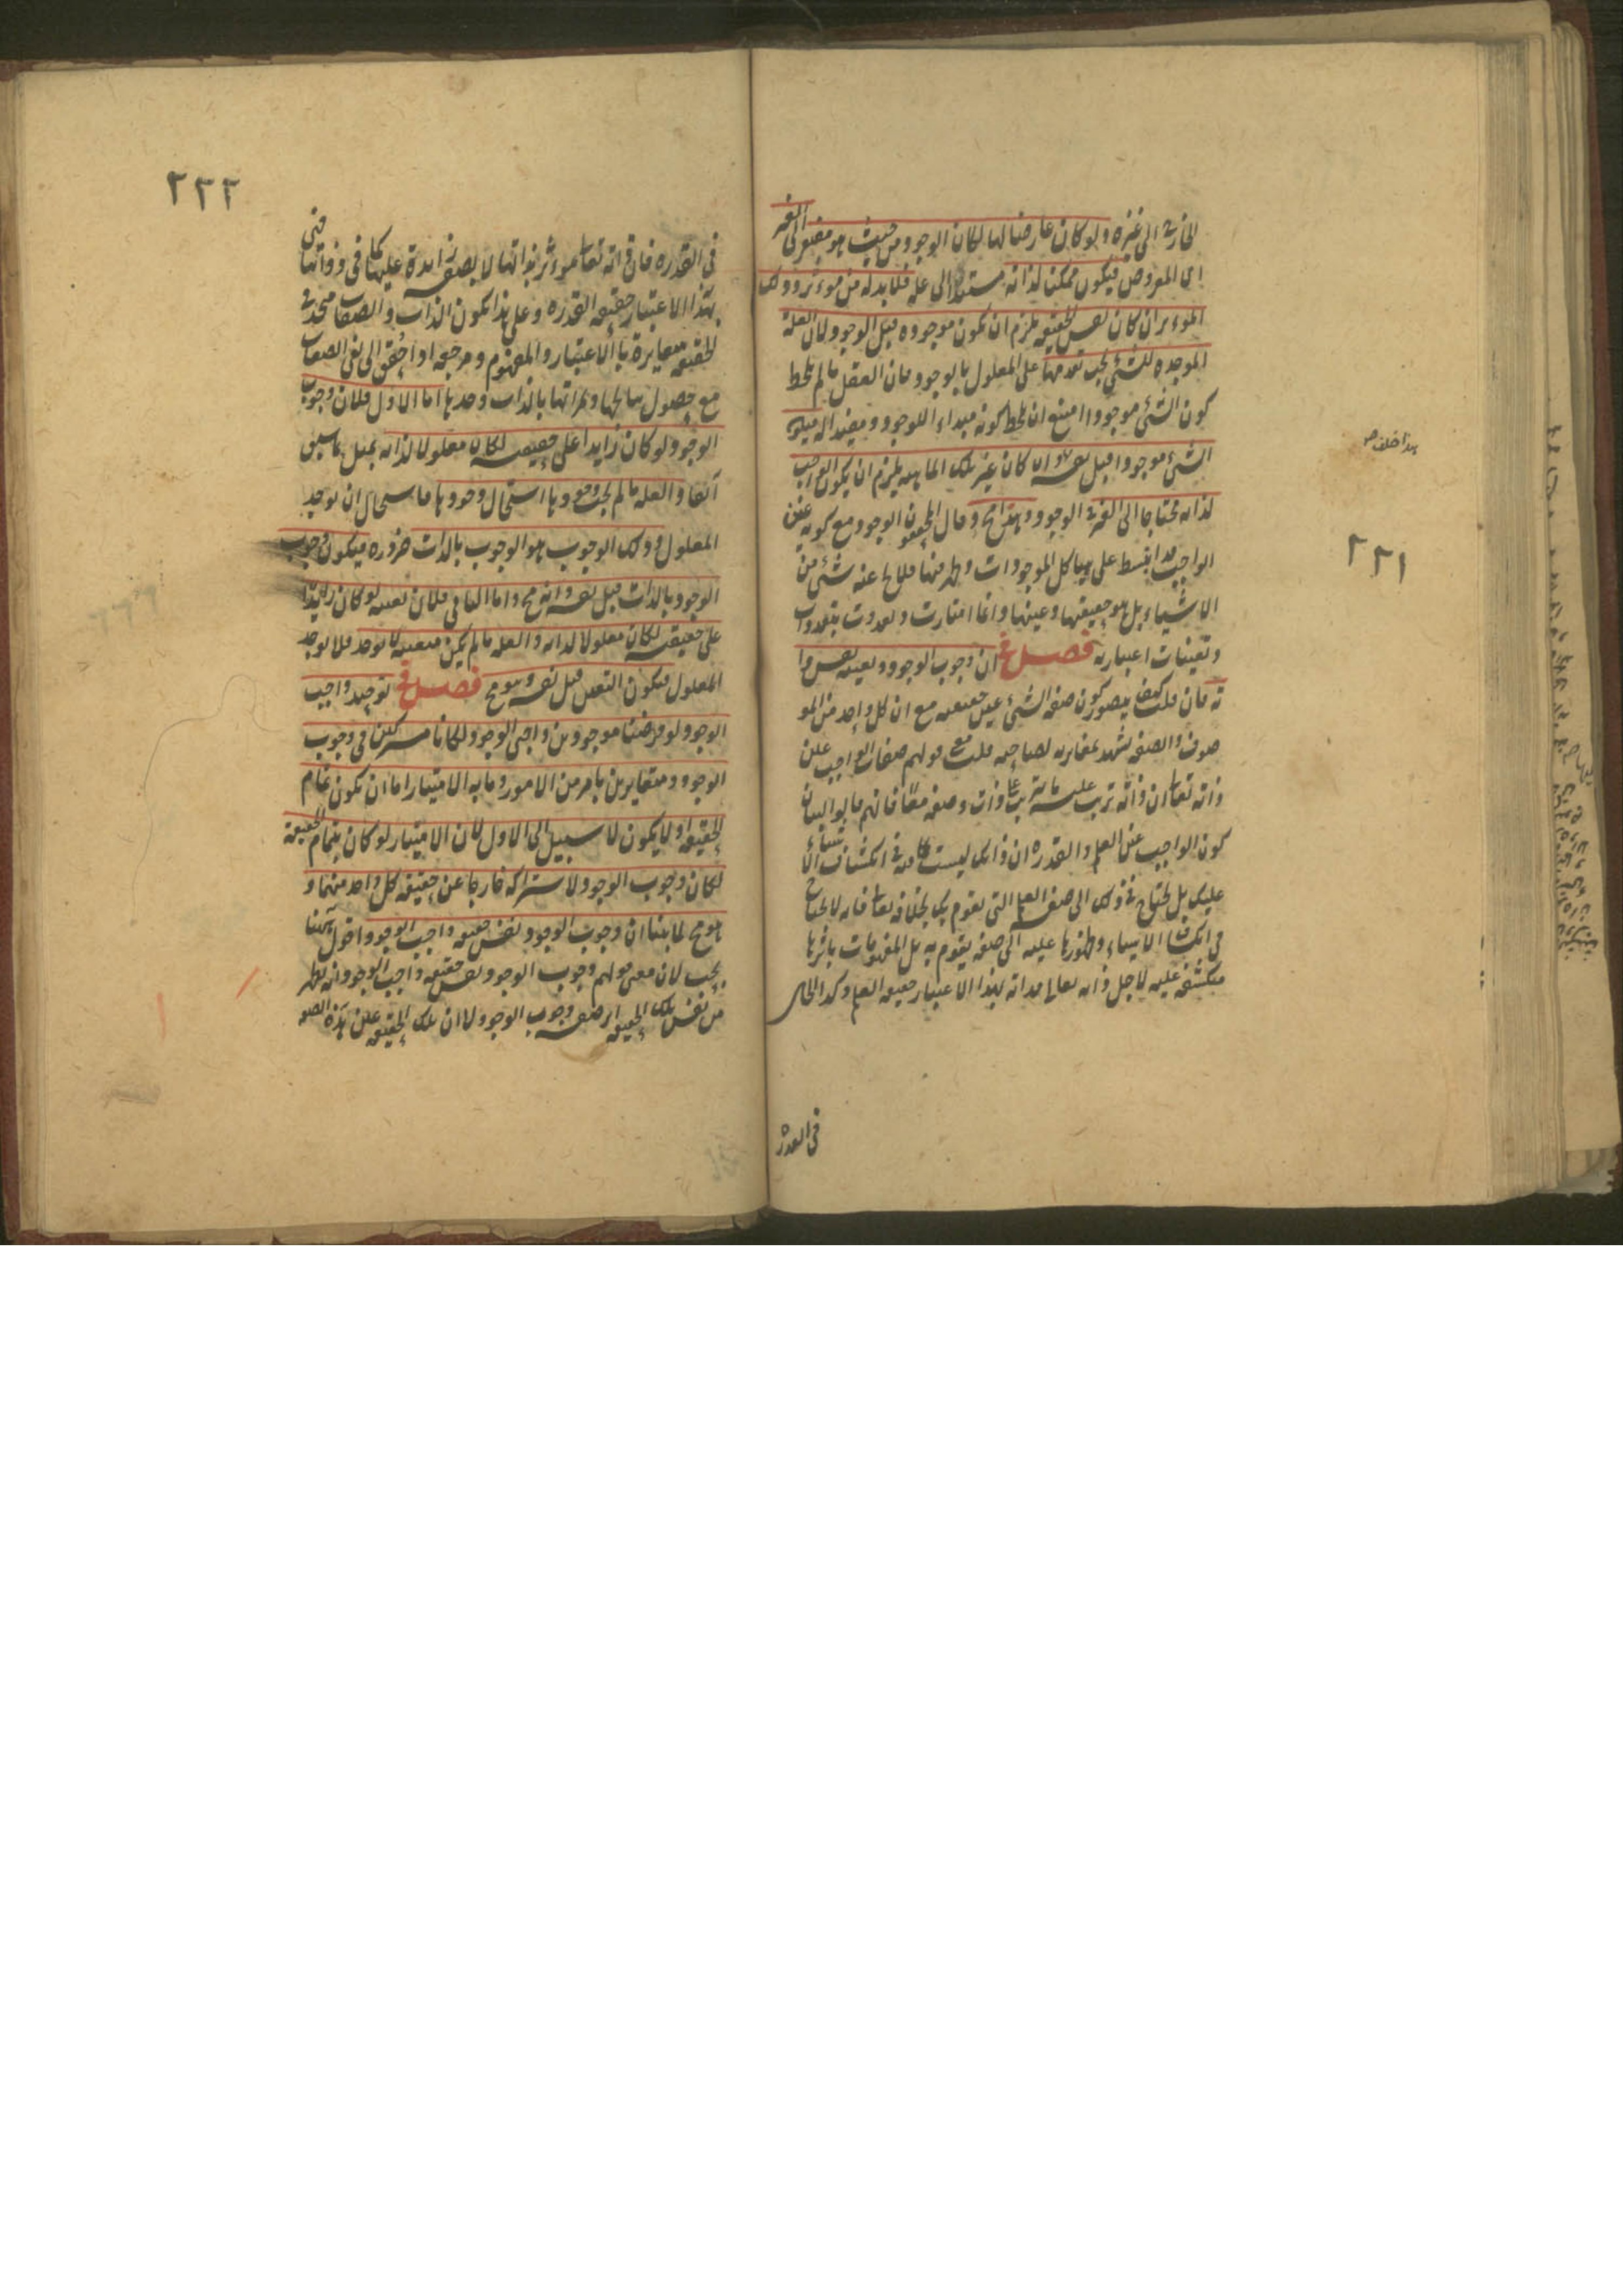 الخارج الى غيره ولو كان عارضا لها لكان الوجود من حيث هو مفتقر الى الغير
اى المعروض فيكون ممكن لذاته مستندا الى علة فلا بد له من موءثر وذلك
الموءثر ان كان نفس الحقيقة يلزم ان يكون موجودة قبل الوجود لان العلة
الموجدة للشئ يجب تقدمها على المعلول بالوجود فان العقل ما لم يلحظ
كون الشئ موجودا امتنع ان يلحظ كونه مبداء اللوجود ومفيدا له فيكون
الشئ موجودا قبل نفسه وان كان غير تلك الماهية يلزم ان يكون الواجب
لذاته محتاجا الى الغير فى الوجود وهذا مح وقال المحققون الوجود مع كونه عين
الواجب قد انبسط على هياكل الموجودات وظهر فيها فلا يخ عنه شئ من
الاشياء بل هو حقيقتها وعينها وانما امتازت وتعددت بتقيدات
وتعينات اعتباريه فصل فى ان وجوب الوجود وتعينه نفس ذا
ته فان قلت كيف يتصور كون صفة الشئ عين حقيقته مع ان كل واحد من المو
صوف والصفة يشهد بمغايرته لصاحبه قلت معنى قولهم صفات الواجب عين
ذاته تعا ان ذاته ترتب عليه ما يترتب على ذات وصفة معا فانهم قالوا لبيان
كون الواجب عين العلم والقدرة ان ذاتك ليست كافية فى انكشاف الاشياء
عليك بل تحتاج فى ذلك الى صفة العلم التى تقوم بك بخلافه تعا فانه لا يحتاج
فى انكشاف الاشياء وظهورها عليه الى صفة يقوم به بل المفهومات باثرها
منكشفة عليه لاجل ذاته تعالى فذاته بهذا الاعتبار حقيقة العلم وكذا الحال
فى القدرة
هذا خلف ص
٢٢١
٢٢٢
فى القدرة فان ذاته تعا موءثر بذاتها لا بصفة زايدة عليها كما فى ذواتنا فهى
بهذا الاعتبار حقيقة القدرة وعلى هذا يكون الذات والصفات متحدة فى
الحقيقة متغايرة باالاعتبار والمفهوم ومرجعه اذا حقق الى نفى الصفات
مع حصول نتائجها وثمراتها بالذات وحدها اما الاول فلان وجوب
الوجود لو كان زايدا على حقيقته لكان معلولا لذاته بمثل ما سبق
آنفا والعلة ما لم يجب وجودها استحال وجودها فاستحال ان توجد
المعلول وذلك الوجوب هو الوجوب بالذات ضروره فيكون وجوب
الوجود بالذات قبل نفسه وانه مح واما الثانى فلان تعينه لو كان زايدا
على حقيقته لكان معلولا لذاته والعلة ما لم يكن متعينة لا توجد فلا توجد
المعلول فيكون التعين قبل نفسه وهو مح فصل فى توحيد واجب
الوجود لو فرضنا موجودين واجبى الوجود لكانا مشتركين فى وجوب
الوجود ومتغايرين بامر من الامور وما به الامتياز اما ان يكون تمام
الحقيقة او لا يكون لا سبيل الى الاول لان الامتياز لو كان بتمام الحقيقة
لكان وجوب الوجود لاشتراكه خارجا عن حقيقة كل واحد منهما و
هو مح لما بينا ان وجوب الوجود نفس حقيقة واجب الوجود اقول ههنا
بحث لان معنى قولهم وجوب الوجود نفس حقيقة واجب الوجود انه يظهر
من نفس تلك الحقيقة اثر صفة وجوب الوجود لا ان تلك الحقيقة عين هذه الصفة